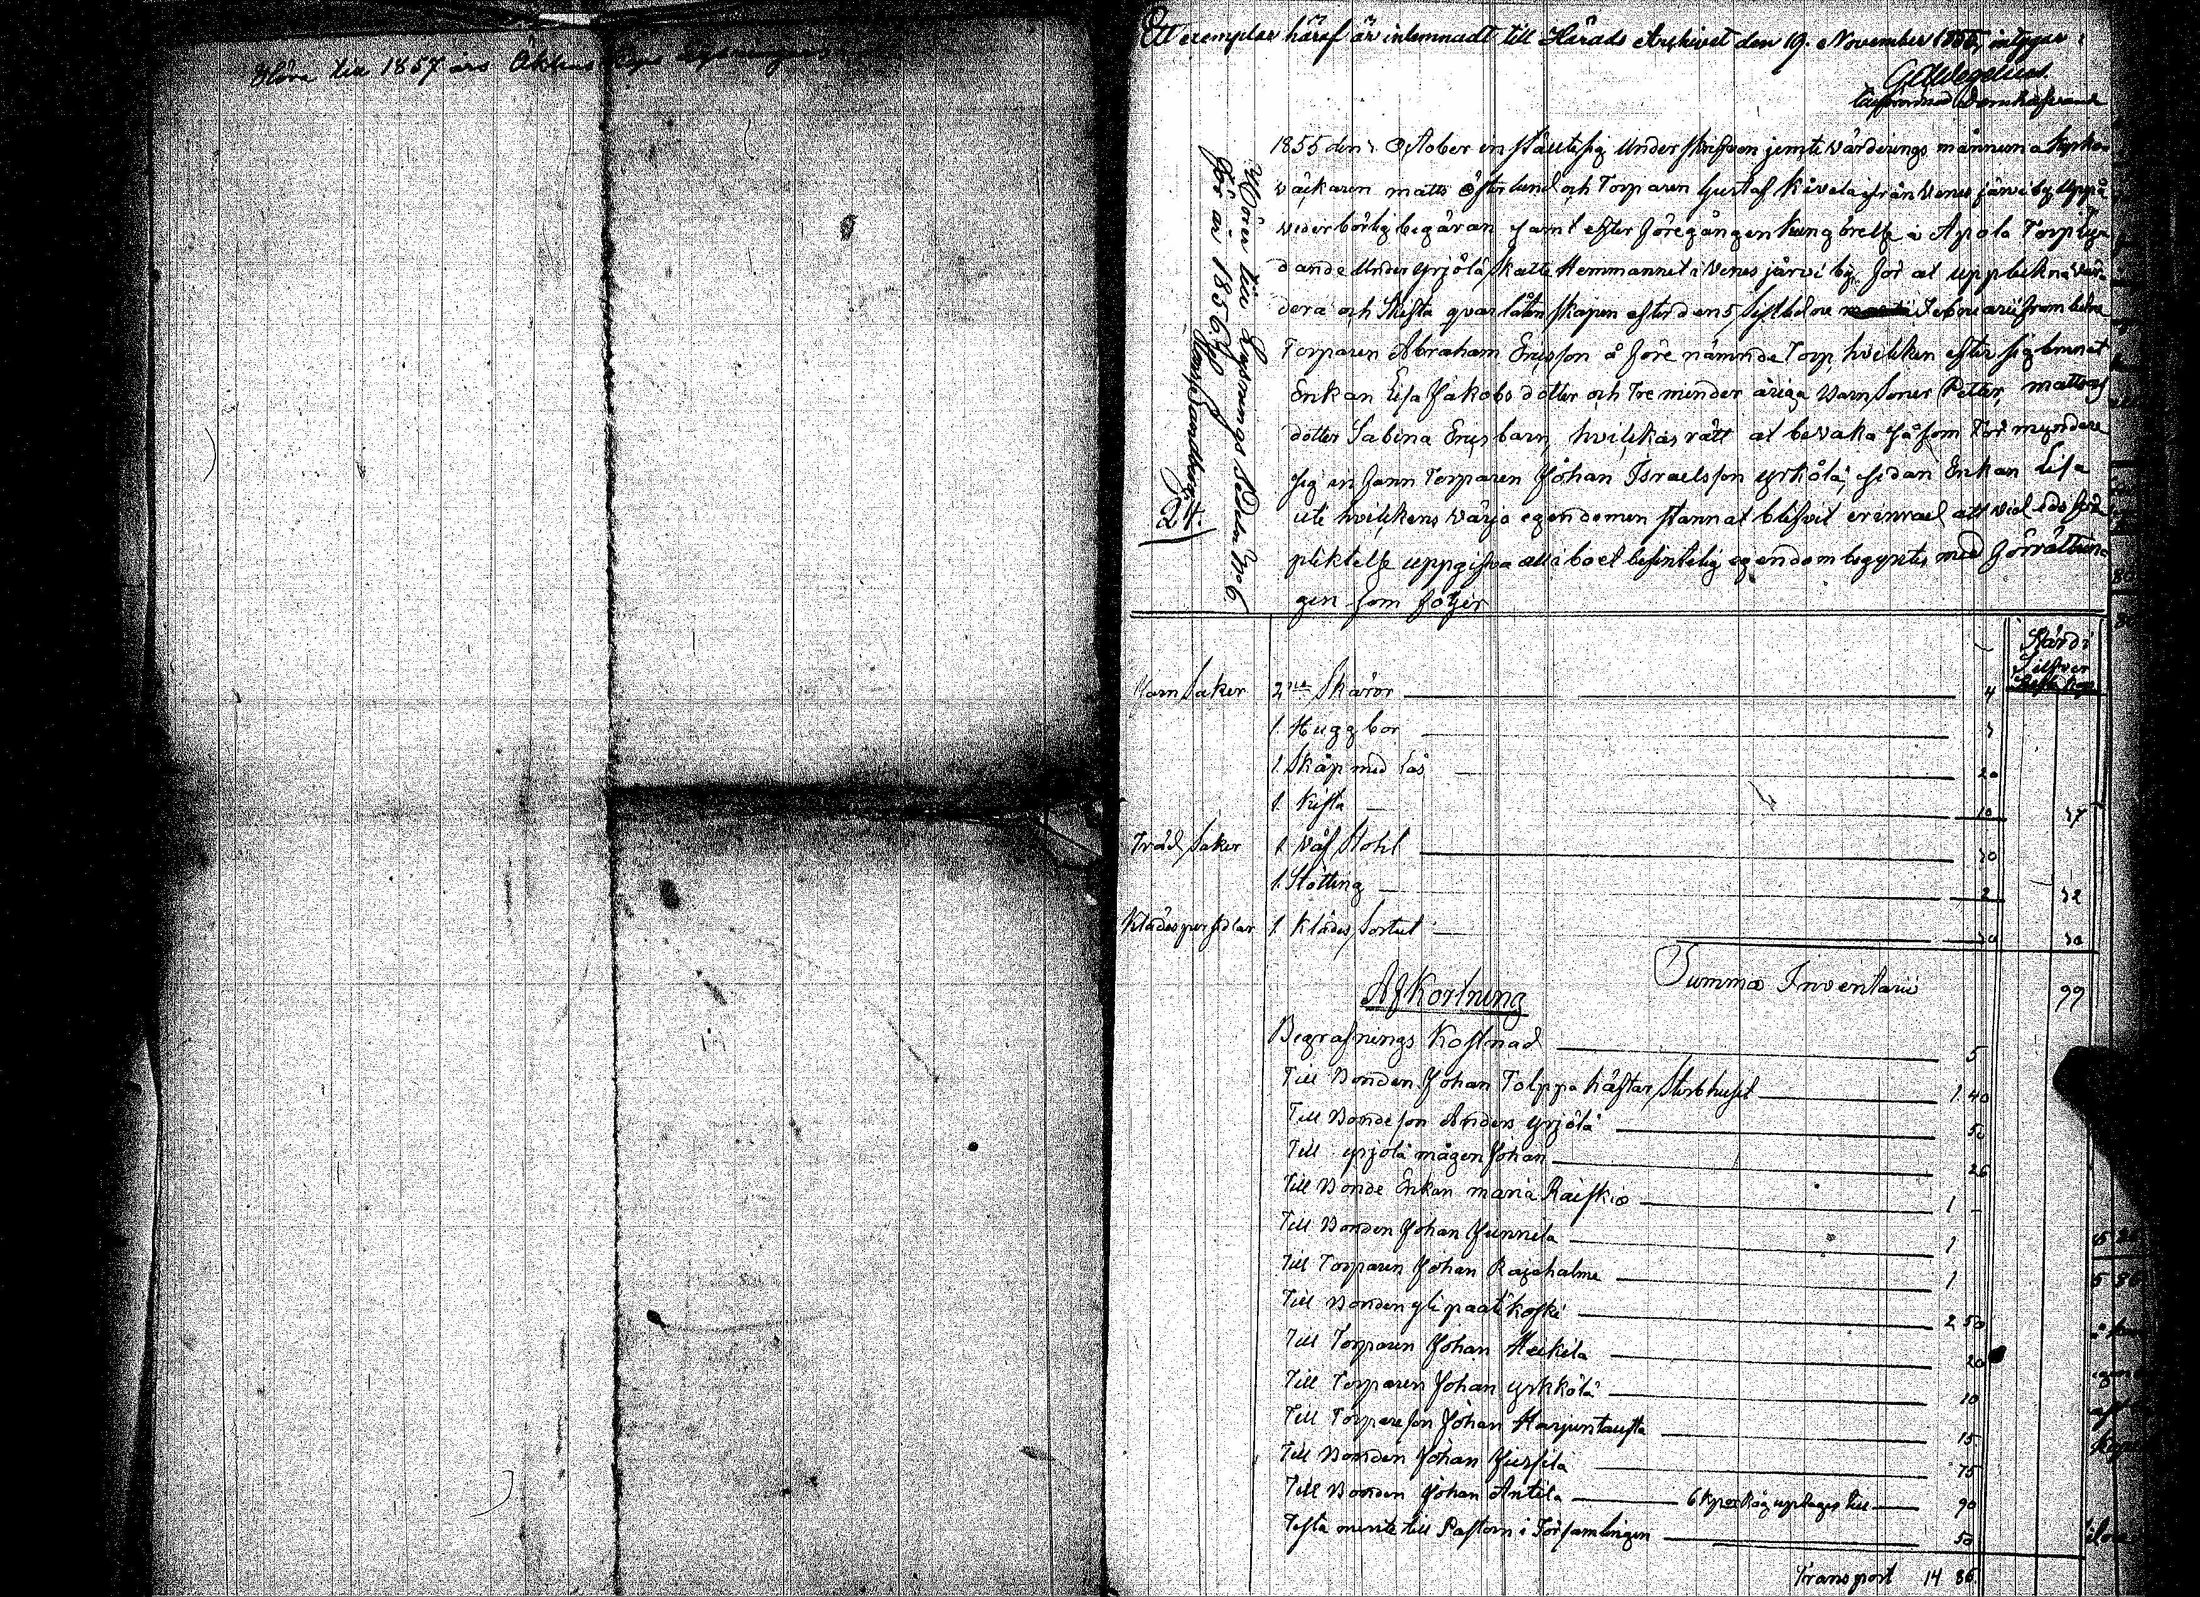 Höra till 1857 års
Ett exemplar häraf är inlemnadt till Härads Arkivet den 19. November 1855, intygar:
1855 den October instälte sig Underskrifven jemte värderings männerna Kyrko
väcktaren matts Österlund och Torparen Gustaf Kivelä ifrån Venesjärvi by uppå
vederbörlig begäran samt efter föregången kungörelse a Apola Torp ly
dande Under yrjölä Skatte Hemmannet i Venesjärvi by, för at uppteckna vär
dera och Skifta qvarlåtenskapen efter den 5 sistledne Februarii from ledne
Torparen Abraham Ericsson å förenämnde Torp, hvilken efter sig lemnat
Enkan Lisa Jakobsdotter och Tre minder åriga Barn Soner Petter, matts och
dotter Sabina Ericsbarn, hvilkas rätt at bevaka såsom Förmyndare
sig infann Torparen Johan Israelsson yrkölä, sedan Enkan Lisa
uti hvilkens värjo egendomen stannat blifvit erinrad att vid eds för
pliktelse uppgifva all i boet befintelig egendom begyntes med förrättnin
gen som följer
Höra till Lysnings Sedeln No 6
för år 1856
Värd i
Silfver
Jarn Saker 2ne Skäror 4
1. Huggbor 3
1. Skåp med Lås 20
1. Kista 10 37
Träd Saker 1. Väf Stohl 30
1. Stötting 2 32
Klädespersedlar 1. Klädes Sortut 30 30
Summa Inventarii 99
Afkortning
Begrafnings Kostnad 5
Till Bonden Johan Tolppa häftar Sterbhuset 1 40
Till Bondeson Anders yrjölä 50
Till yrjölä mågen Johan 26
Till Bonde Enkan maria Raiskio 1 -
Till Bonden Johan Junnila 1
Till Torparen Johan Rajahalme 1
Till Bonden ylipaatikoski 2 50
Till Torparen Johan Heikila 20
Till Torparen Johan yrkkölä 10
Till Torpareson Johan Harjuntausta 15
Till Bonden Johan Jussila 75
Till Bonden Johan Antila 6 kpor Råg uptages till 90
Testamente till Pastorn i Församlingen 50
Transport 14 86